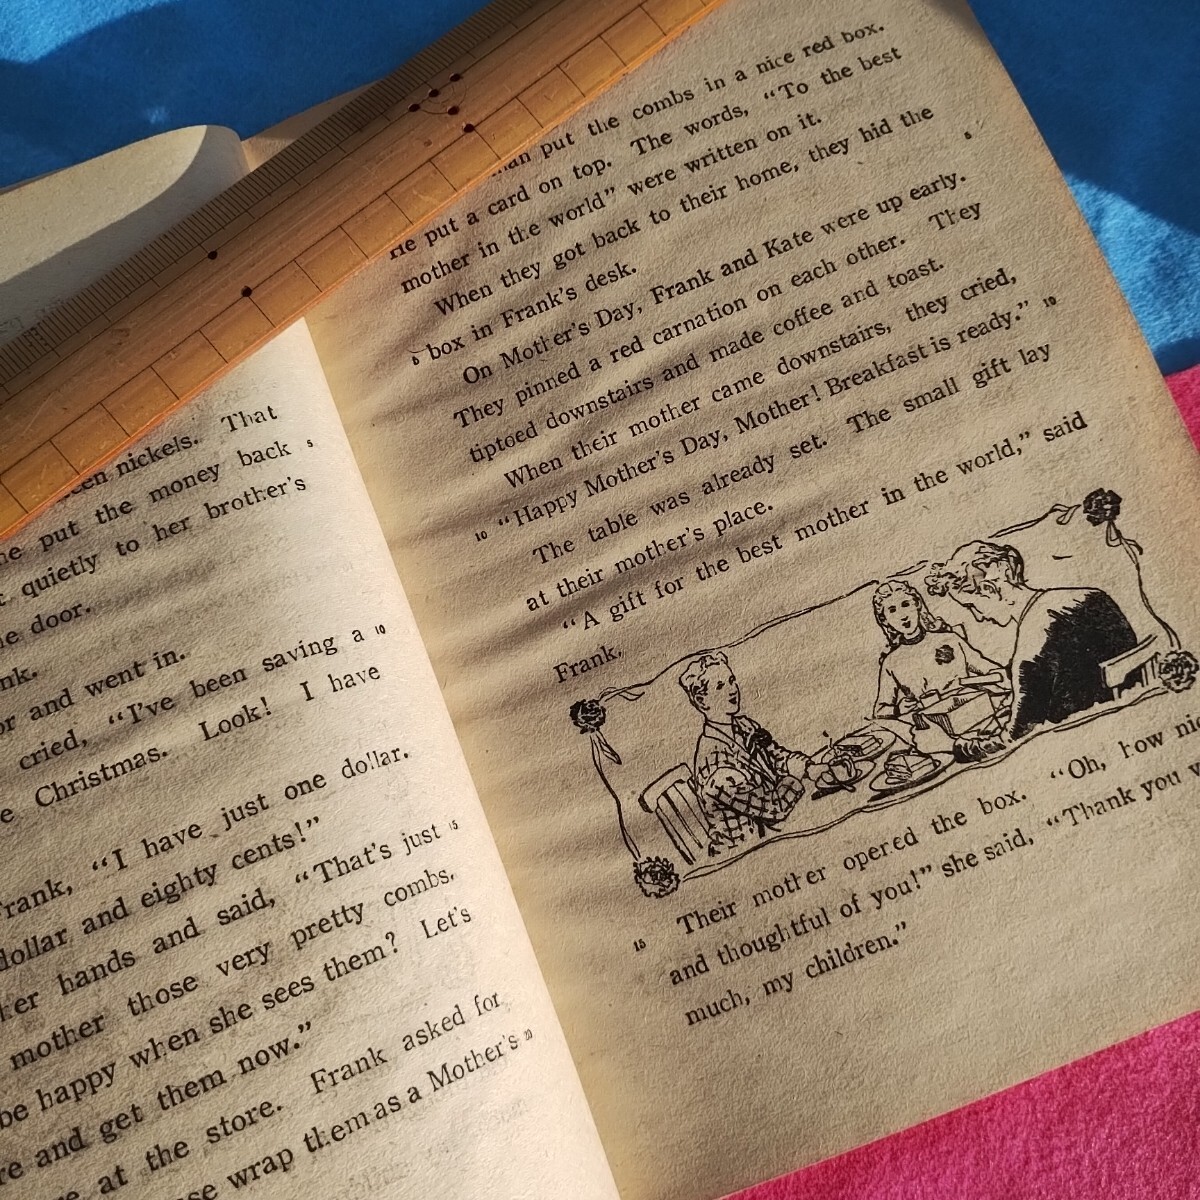 nickels. That
put the money back 5
quietly to her brother's
door.
or and went in.
cried, "I've been saving a 10
Christmas. Look! I have
Frank, "I have just one dollar.
dollar and eighty cents!"
her hands and said, "That's just 15
mother those very pretty combs.
be happy when she sees them? Let's
and get them now."
at the store. Frank asked for
wrap them as a Mother's 20
put the combs in a nice red box.
He put a card on top. The words, "To the best
mother in the world" were written on it.
When they got back to their home, they hid the
5 box in Frank's desk. 5
On Mother's Day, Frank and Kate were up early.
They pinned a red carnation on each other. They
tiptoed downstairs and made coffee and toast.
When their mother came downstairs, they cried,
10 "Happy Mother's Day, Mother! Breakfast is ready." 10
The table was already set. The small gift lay
at their mother's place.
"A gift for the best mother in the world," said
Frank.
15 Their mother opened the box. "Oh, how
and thoughtful of you!" she said, "Thank you
much, my children."